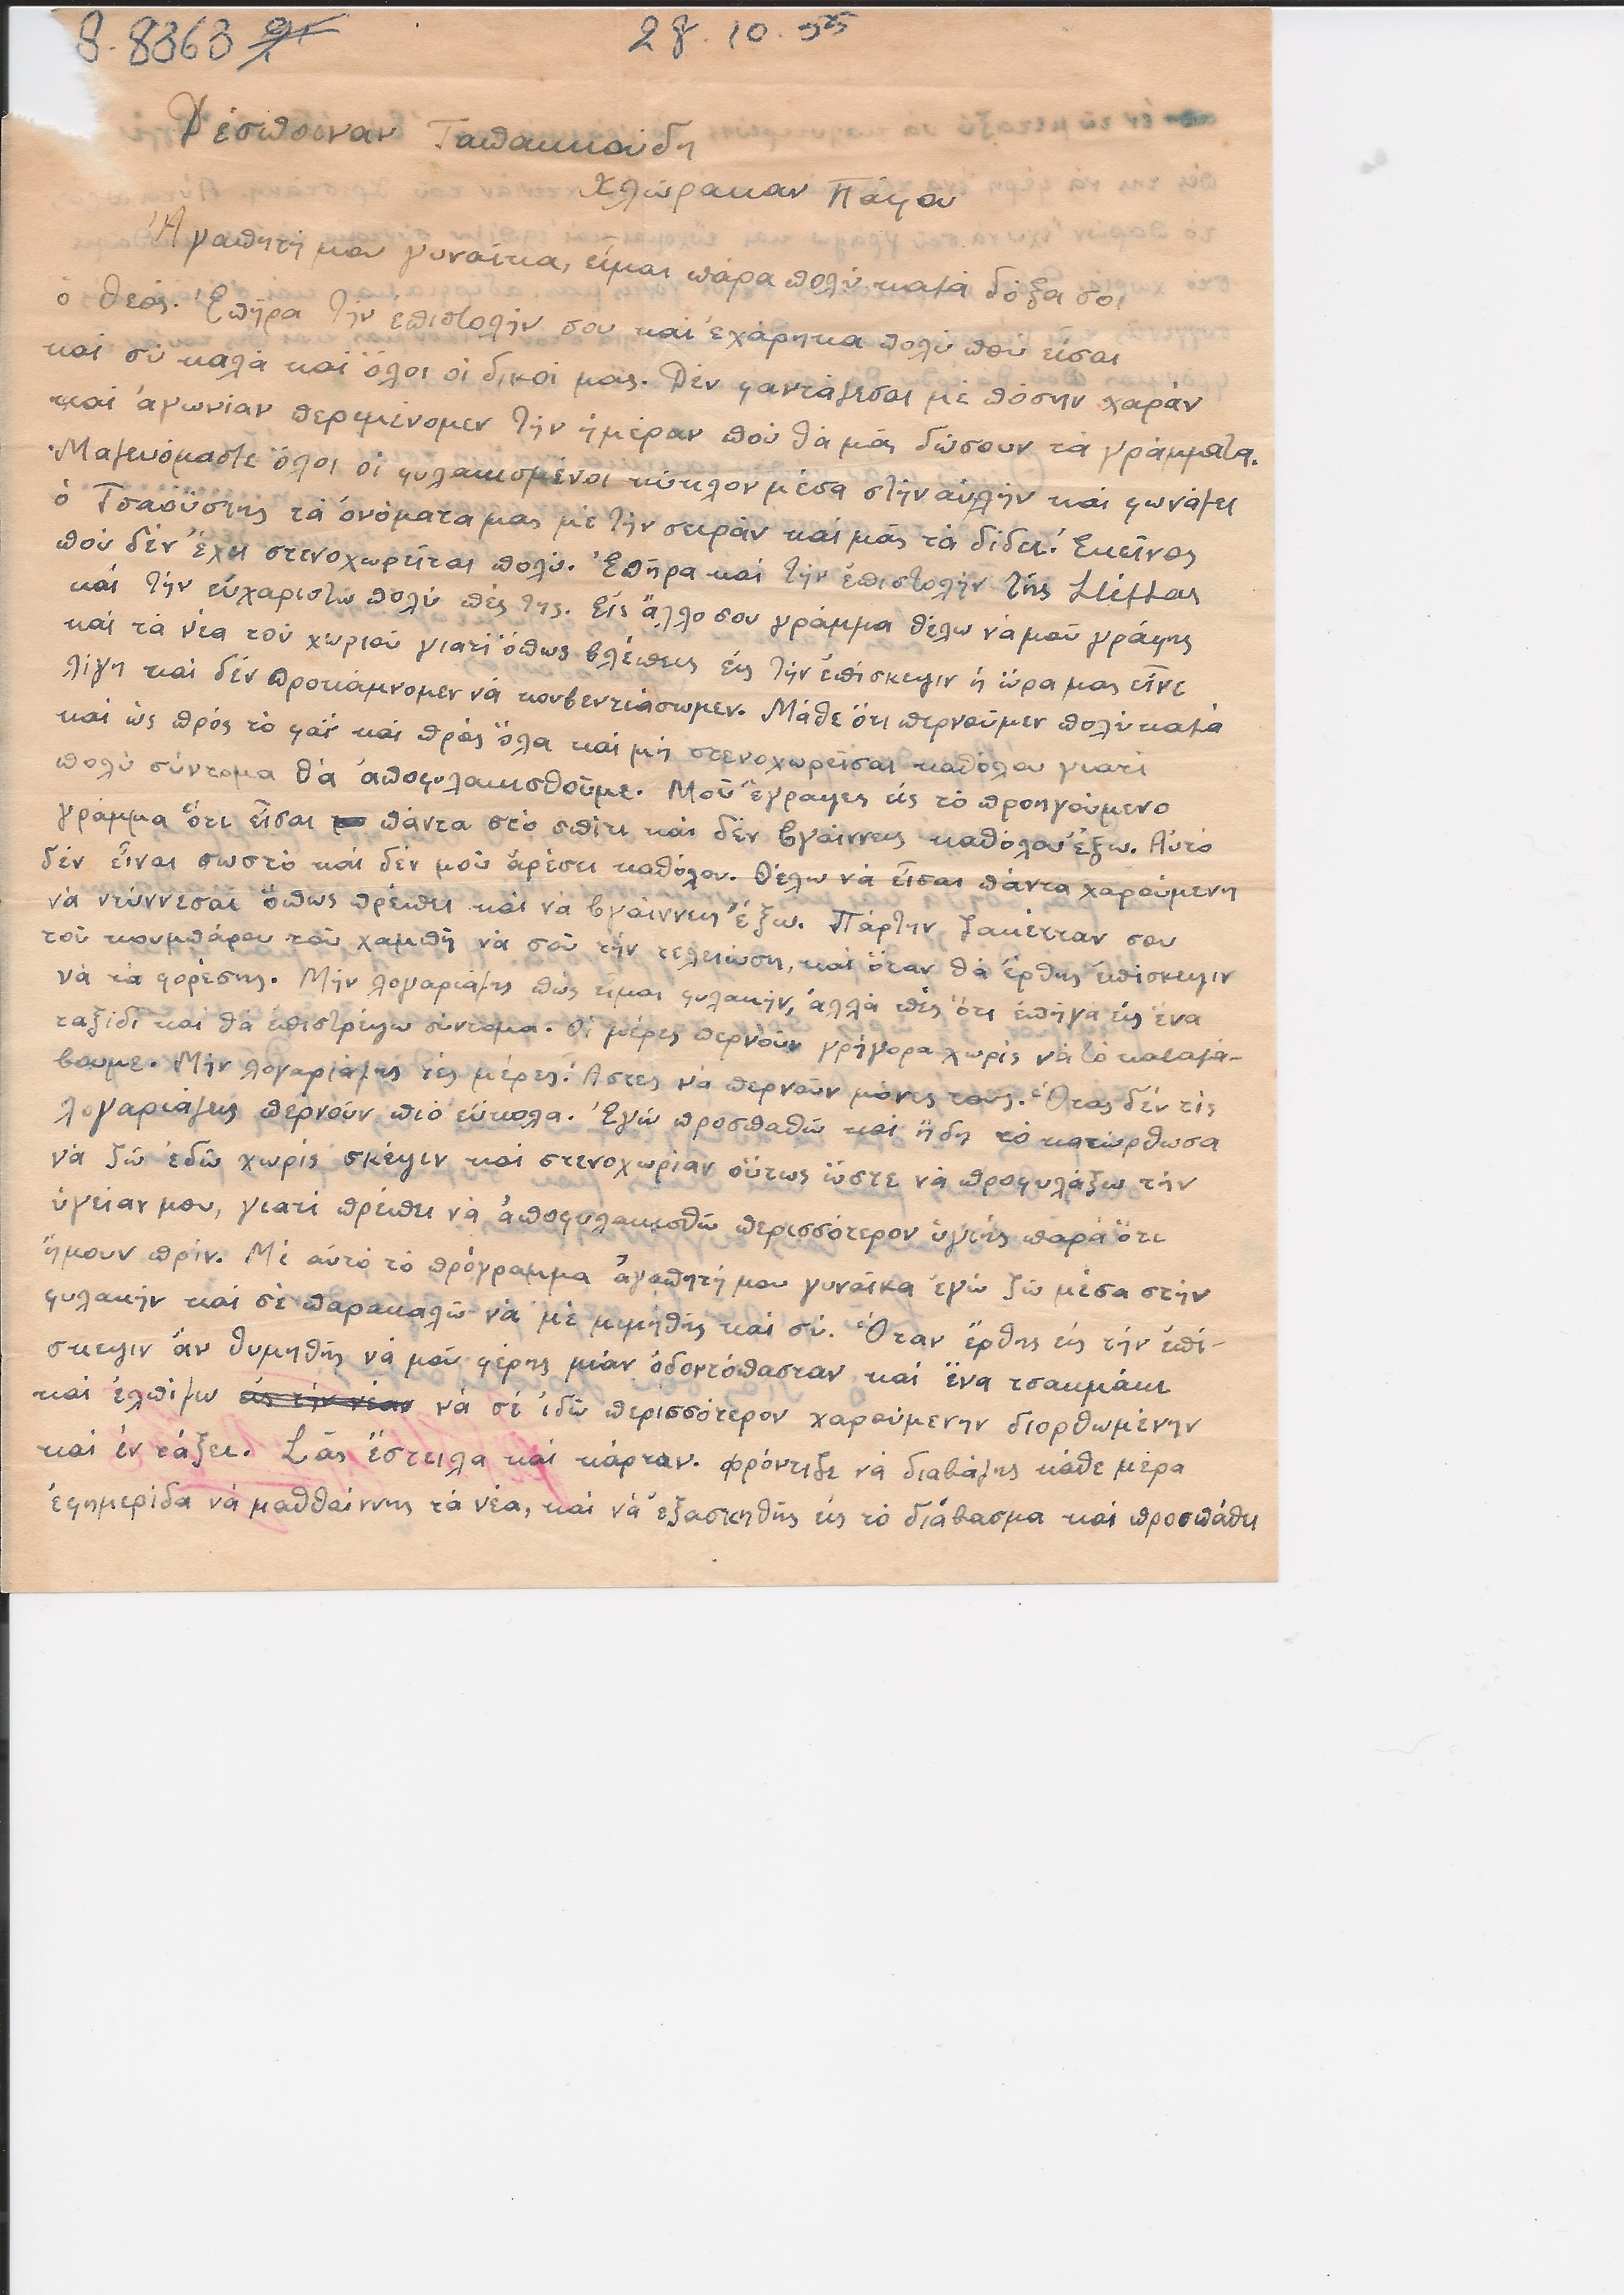 8363 28.10.55
Δέσποιναν Ταπακκούδη
Χλώρακαν Πάφου
Ἀγαπητή μου γυναίκα, εἶμαι πάρα πολύ καλά δόξα σοι
ὁ Θεός. Ἐπῆρα τήν ἐπιστολήν σου καί ἐχάρηκα πολύ πού εἶσαι
καί σύ καλά καί ὅλοι οἱ δικοί μας. Δέν φαντάζεσαι μέ πόσην χαράν
καί ἀγωνίαν περιμένομεν τήν ἡμέραν πού θά μᾶς δώσουν τά γράμματα.
Μαζευόμαστε ὅλοι οἱ φυλακισμένοι κύκλον μέσα στήν αὐλήν καί φωνάζει
ὁ Τσαούστης τά ὀνόματα μας μέ τήν σειράν καί μᾶς τά δίδει. Ἐκεῖνος
πού δέν ἔχει στενοχωρεῖται πολύ. Ἐπῆρα καί τήν ἐπιστολήν τῆς
καί τήν εὐχαριστῶ πολύ πές της. Εἰς ἄλλο σου γράμμα θέλω νά μοῦ γράψης
καί τά νέα τοῦ χωριοῦ γιατί ὅπως βλέπεις εἰς τήν ἐπίσκεψιν ἡ ὥρα μας εἶνε
λίγη καί δέν προκάμνομεν νά κουβεντιάσωμεν. Μάθε ὅτι περνοῦμεν πολύ καλά
καί ὡς πρός τό φαΐ καί πρός ὅλα καί μή στενοχωρεῖσαι καθόλου γιατί
πολύ σύντομα θά ἀποφυλακισθοῦμε. Μοῦ ἔγραψες εἰς τό προηγούμενο
γράμμα ὅτι εἶσαι πάντα στό σπίτι καί δέν βγαίννεις καθόλου ἔξω. Αὐτό
δέν εἶναι σωστό καί δέν μοῦ ἀρέσει καθόλου. Θέλω νά εἶσαι πάντα χαρούμενη
νά ντύννεσαι ὅπως πρέπει καί νά βγαίννεις ἔξω. Πάρ τήν ζακέτταν σου
τοῦ κουμπάρου τοῦ χαμπῆ νά σοῦ τήν τελειώση, καί ὅταν θά ἔρθης ἐπίσκεψιν
νά τά φορέσης. Μήν λογαριάζης πώς εἶμαι φυλακήν, ἀλλά πές ὅτι ἐπῆγα εἰς ἕνα
ταξίδι καί θά ἐπιστρέψω σύντομα. Οἱ μέρες περνοῦν γρήγορα χωρίς νά τό καταλά-
βουμε. Μήν λογαριάζης τές μέρες. Ἄστες νά περνοῦν μόνες τους. Ὅταν δέν τίς
λογαριάζεις περνοῦν πιό εὔκολα. Ἐγώ προσπαθῶ καί ἤδη τό κατώρθωσα
νά ζῶ ἐδῶ χωρίς σκέψιν καί στενοχωρίαν οὕτως ὥστε νά προφυλάξω τήν
ὑγείαν μου, γιατί πρέπει νά ἀποφυλακισθῶ περισσότερον ὑγιής παρά ὅτι
ἤμουν πρίν. Μέ αὐτό τό πρόγραμμα ἀγαπητή μου γυναῖκα ἐγώ ζῶ μέσα στήν
φυλακήν καί σέ παρακαλῶ νά μέ μιμηθῆς καί σύ. Ὅταν ἔρθης εἰς τήν ἐπί-
σκεψιν ἄν θυμηθῆς νά μοῦ φέρης μίαν ὀδοντόπασταν καί ἕνα τσακμάκι
καί ἐλπίζω εἰς τήν νέαν νά σέ ἰδῶ περισσότερον χαρούμενην διορθωμένην
καί ἐν τάξει. Σᾶς ἔστειλα καί κάρταν. φρόντιζε νά διαβάζης κάθε μέρα
ἐφημερίδα νά μαθθαίννης τά νέα, καί νά ἐξασκηθῆς εἰς τό διάβασμα καί προσπάθει